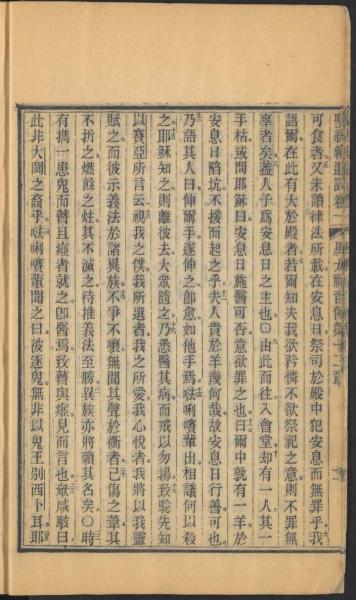 聖經新遺詔卷一 馬太福音傳第十二章
可食者又未讀律法所載在安息日祭司於殿中犯安息而無罪乎我
語爾在此有大於殿者若爾知夫我欲矜憐不欲祭祀之意則不罪無
辜者矣蓋人子爲安息日之主也〇由此而往入會堂却有一人其一
手枯或問耶穌曰安息日施醫可否意欲罪之也曰爾中孰有一羊於
安息日陷坑不援而起之乎夫人貴於羊幾何哉故安息日行善可也
乃語其人曰伸爾手遂伸之卽愈如他手焉㗂唎㘔輩出相議何以殺
之耶穌知之則離彼去大衆隨之乃悉醫其病而戒以勿揚致驗先知
以賽亞所言云視我之僕我所選者我之所愛我心悅者我將以我靈
賦之而彼示義法於諸異族不爭不嚷無聞其聲於衢者已傷之葦其
不折之燃餘之炷其不滅之待推義法至勝異族亦將賴其名矣〇時
有攜一患鬼而瞽且瘖者就之卽醫焉致瞽與瘖見而言也衆咸駭曰
此非大闢之裔乎㗂唎㘔輩聞之曰彼逐鬼無非以鬼王别西卜耳耶